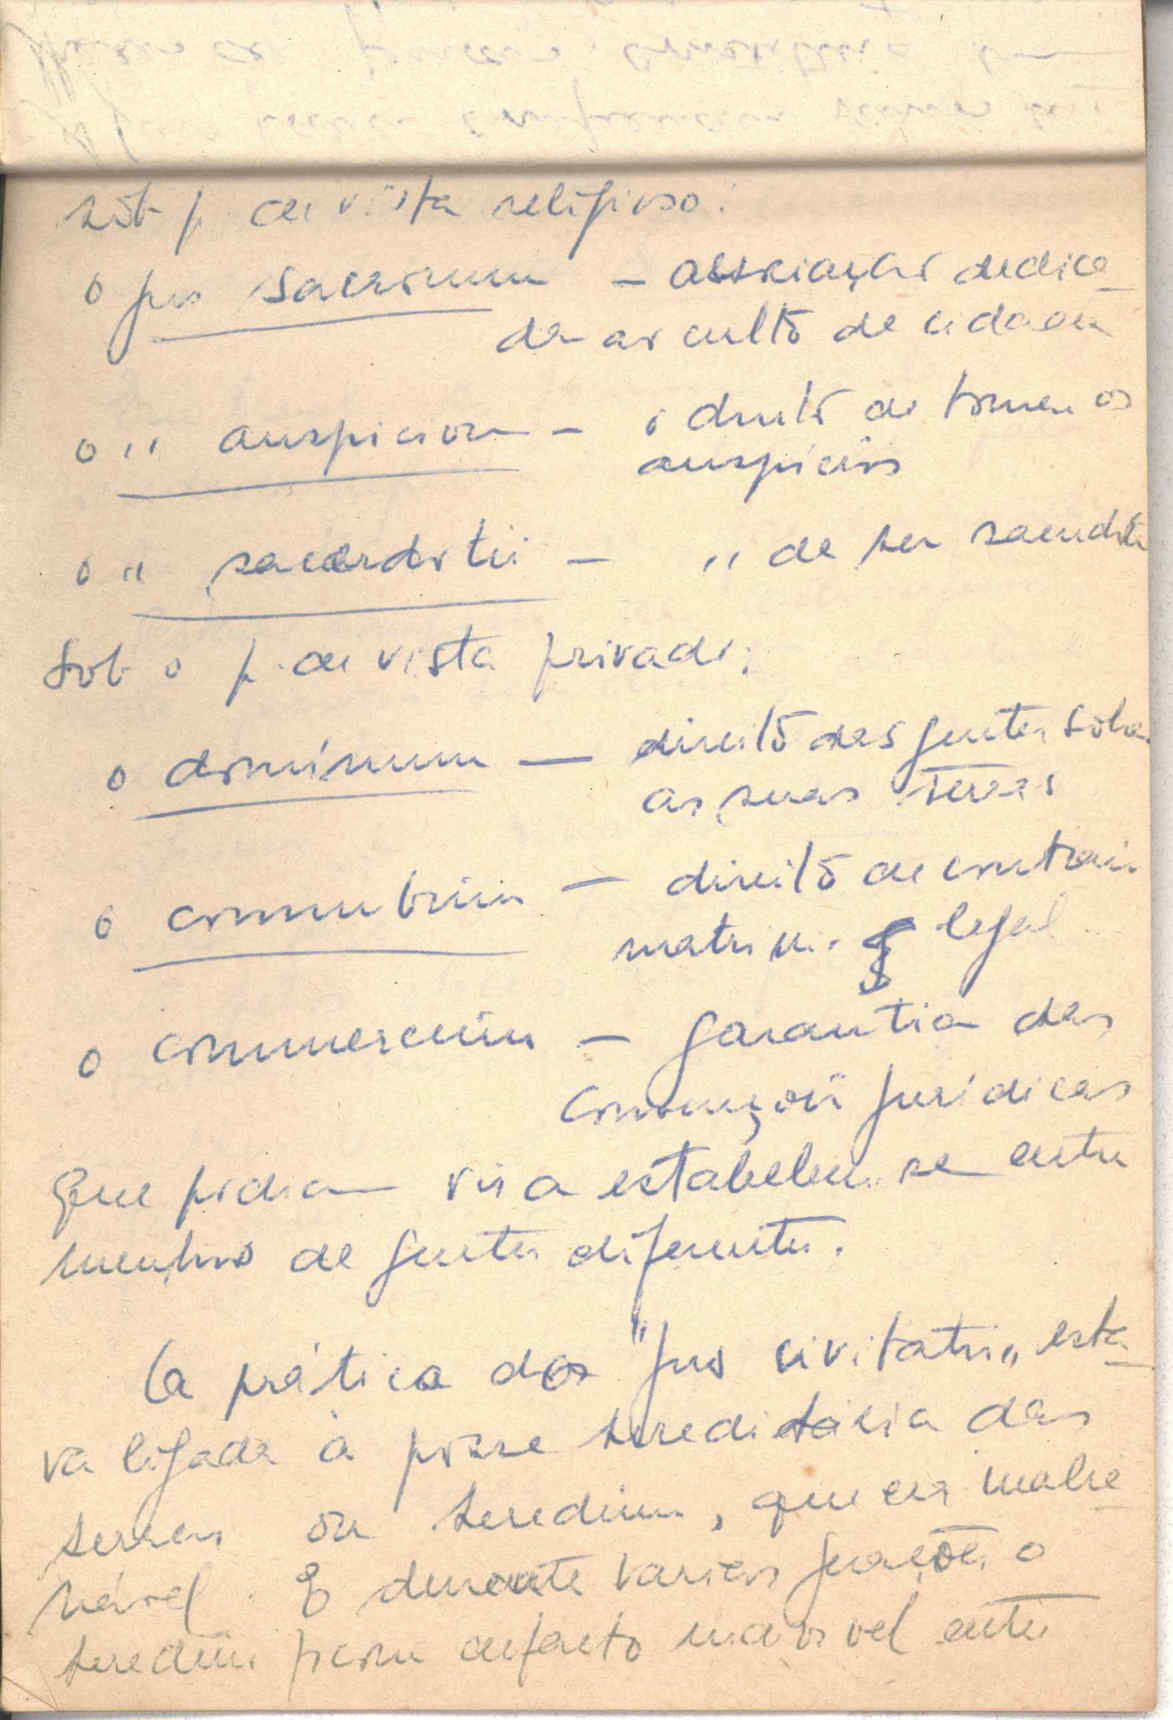 sob p. de vista religioso:
o jus sacrorum – associação dedica-
da ao culto da cidade
o " auspiciorum – o direito de tomar os
auspícios
o " sacerdotii – " de ser sacerdote
Sob o p. de vista privado:
o dominium — direito das gentes sobre
as suas terras
o connubium – direito de contrair
matrim. legal
o commercium – garantia das
convenções jurídicas
que podiam vir a estabelecer-se entre
membros de gentes diferentes.
a prática dos "jus civitatis" esta-
va ligada à posse hereditária das
terras ou heredium, que era inalie-
nável. E durante varias gerações o
heredium ficou de facto indivisível entre